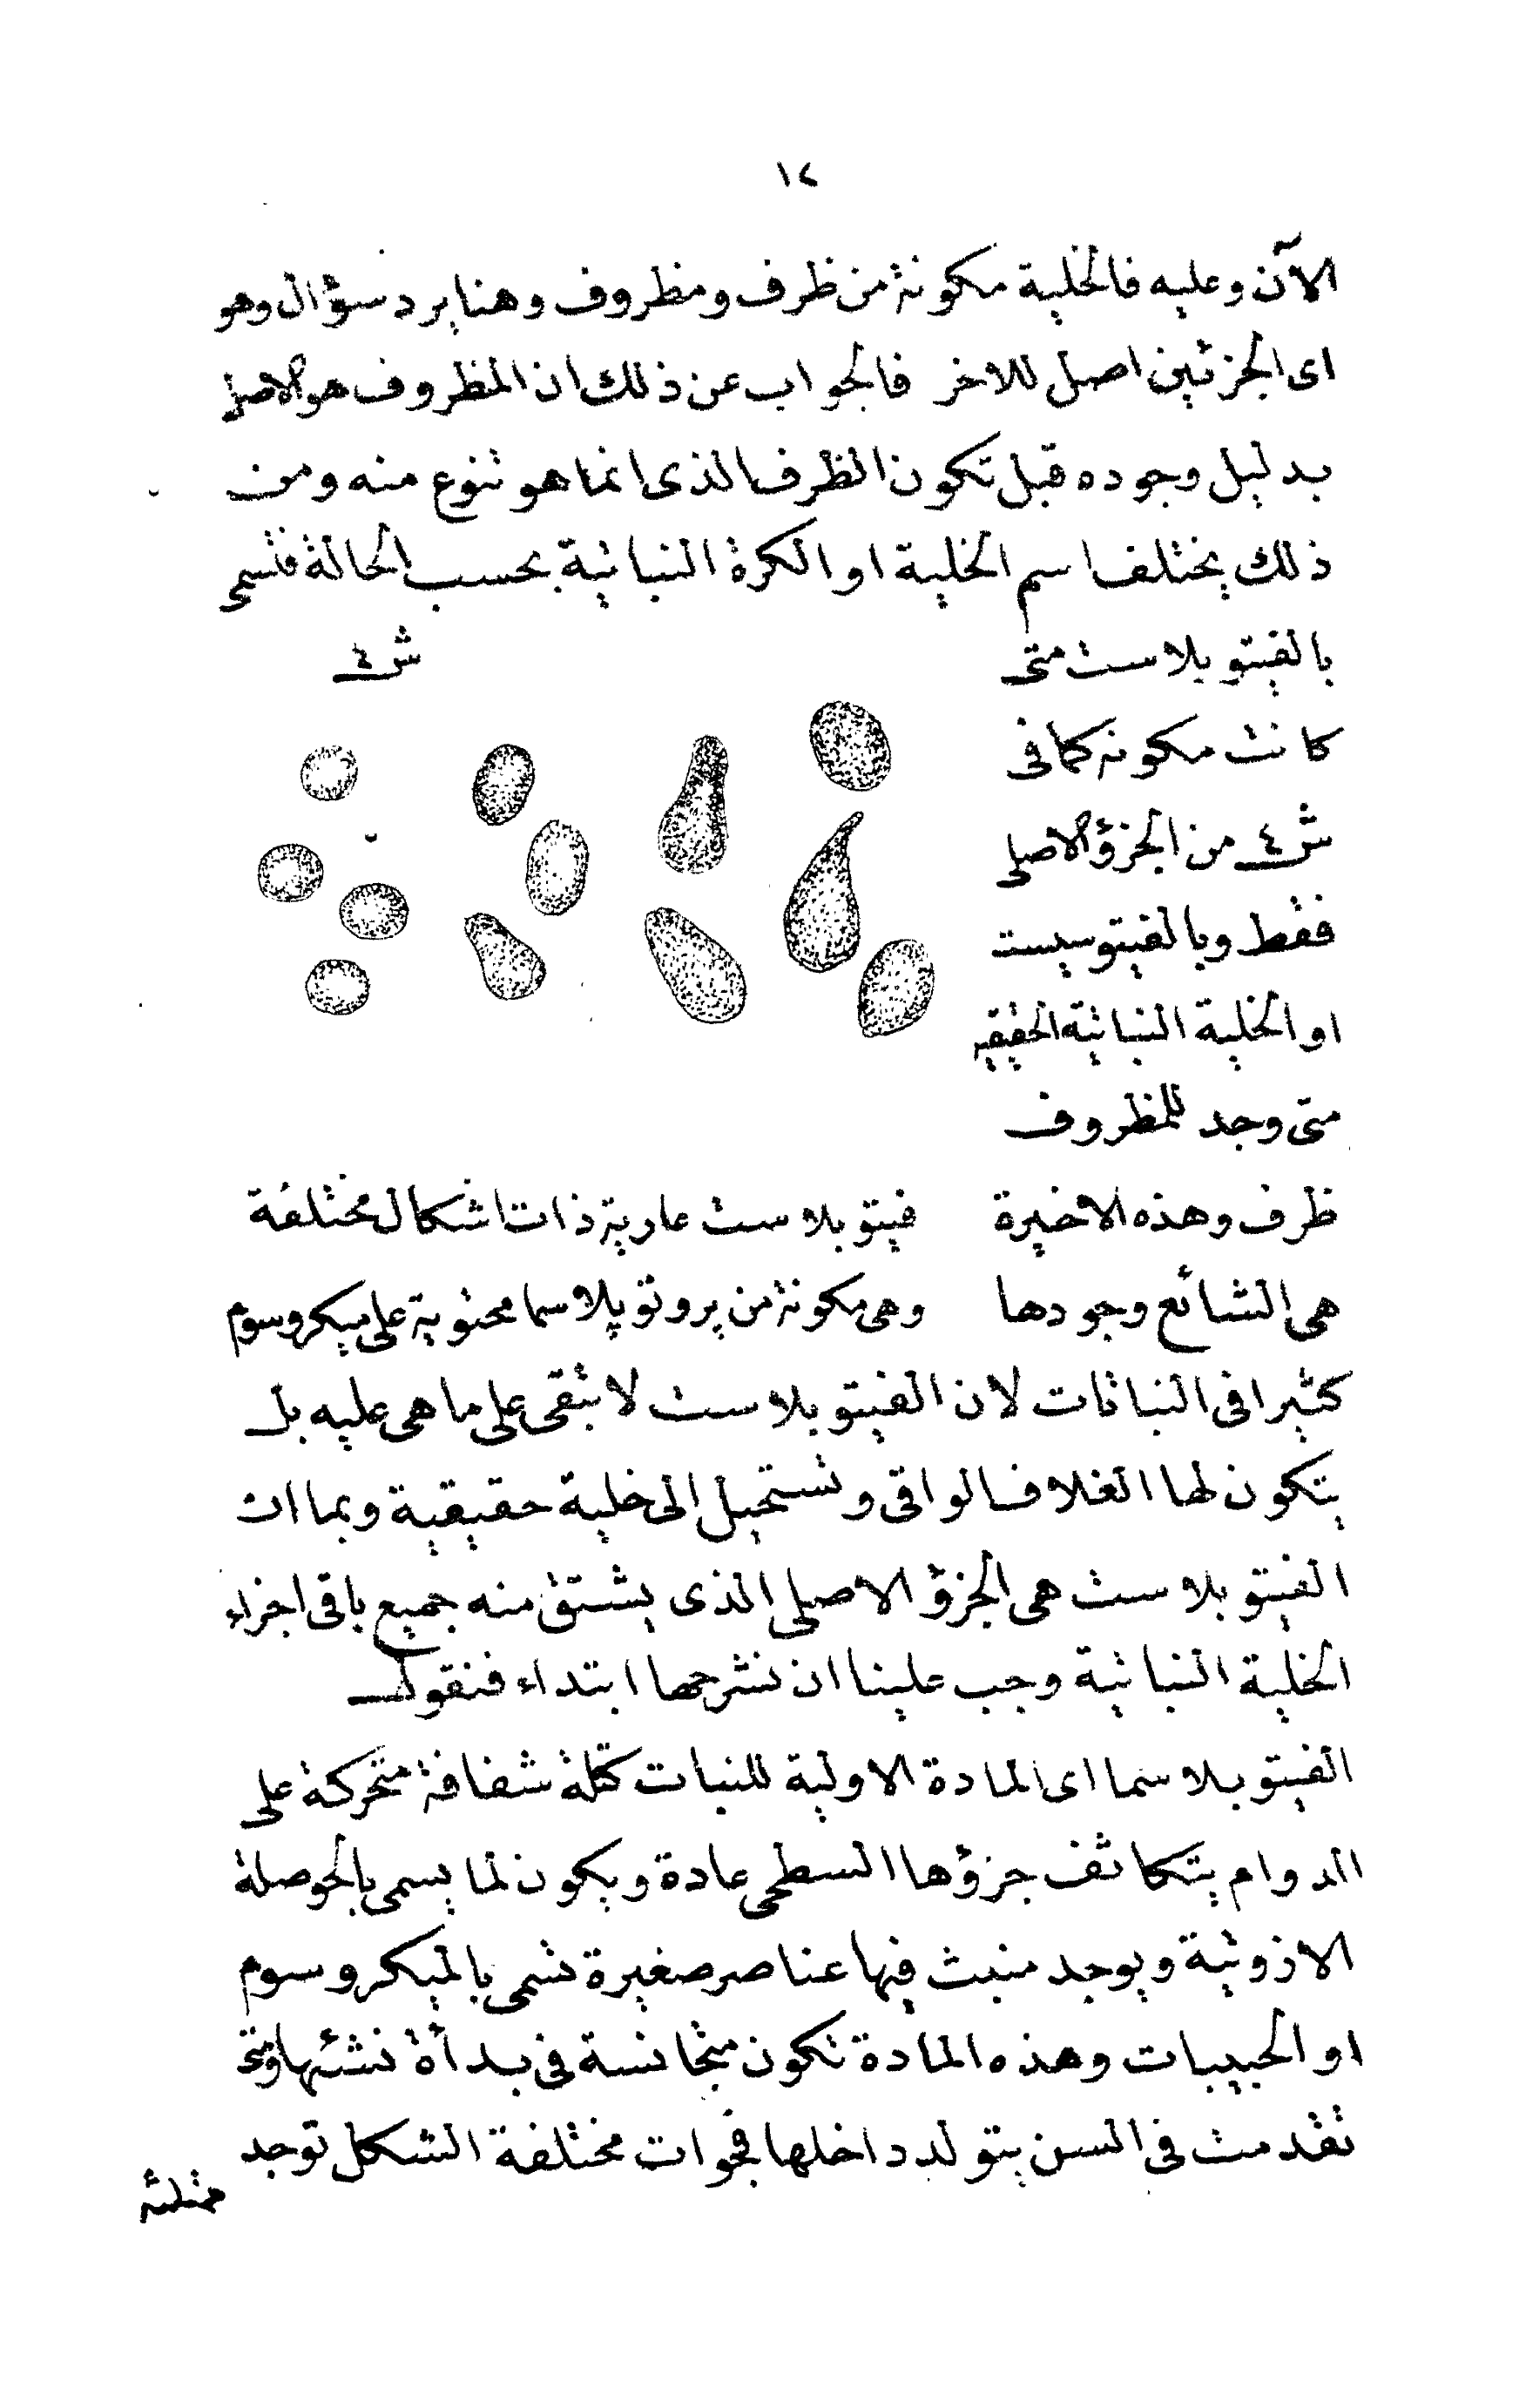 ١٢
الآن وعليه فالخلية مكونة من ظرف ومظروف وهنا يرد سؤال وهو
اى الجزئين اصل للاخر فالجواب عن ذلك ان المظروف هو الاصل
بدليل وجوده قبل تكون الظرف الذى انما هو تنوع منه ومن
ذلك يختلف اسم الخلية او الكرة النباتية بحسب الحالة فتسمى
بالفيتوبلاست متى
كانت مكونه كما فى
ش٤ من الجزؤ الاصلى
فقط وبالفيتوسيست
او الخلية النباتية الحقيقيه
متى وجد للمظروف
ظرف وهذه الاخيرة
هى الشائع وجودها
ش٤
فيتوبلاست عارية ذات اشكال مختلفة
وهى مكونة من پروتوپلاسما محتوية على ميكروسوم
كثيرا فى النباتات لان الفيتوبلاست لا تبقى على ما هى عليه بل
يتكون لها الغلاف الواقى وتستحيل الى خلية حقيقية وبما ان
الفيتوبلاست هى الجزؤ الاصلى الذى يشتق منه جميع باقى اجزاء
الخلية النباتية وجب علينا ان نشرحها ابتداء فنقول
الفيتوبلاسما اى المادة الاولية للنبات كتلة شفافة متحركة على
الدوام يتكاثف جزؤها السطحى عادة ويكون لما يسمى بالحوصلة
الازوتية ويوجد منبث فيها عناصر صغيرة تسمى بالميكروسوم
او الحبيبات وهذه المادة تكون متجانسة فى بدأة نشئتها ومتى
تقدمت فى السن يتولد داخلها فجوات مختلفة الشكل توجد
ممتلئه